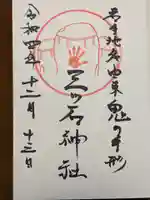 岩手地名由来鬼の手形
三ツ石神社
令和四年十二月十三日